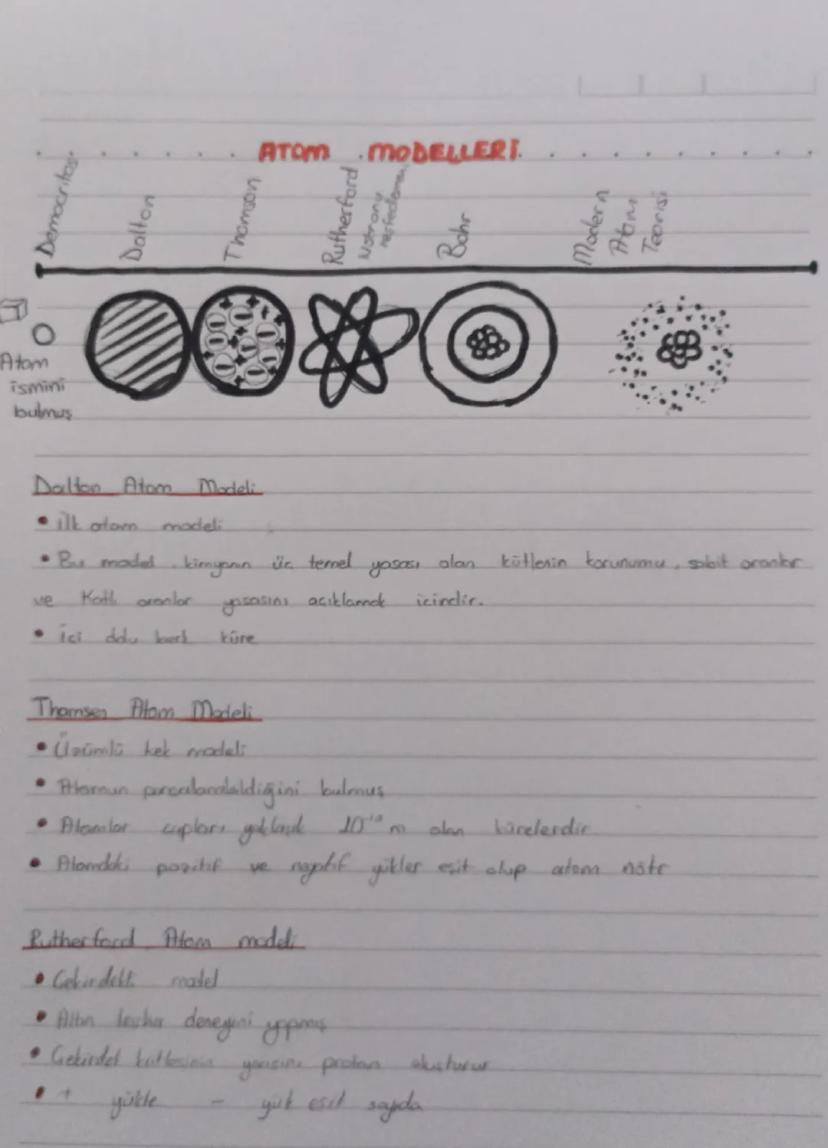 ATOM MODELLERİ
Democritos
Dalton
Thomson
Rutherford
Nötronu
Bohr
Modern
Atom
Teorisi
Atom
ismini
bulmuş
Dalton Atom Modeli
• İlk atom modeli
• Bu model kimyanın üç temel yasası olan kütlenin korunumu, sabit oranlar
ve Katlı oranlar yasasını açıklamak içindir.
• İçi dolu berk küre
Thomson Atom Modeli
• Üzümlü kek modeli
• Atomun parçalanabildiğini bulmuş
• Atomlar çapları yaklaşık 10⁻¹⁰ m olan kürelerdir
• Atomdaki pozitif ve negatif yükler eşit olup atom nötr
Rutherford Atom modeli
• Çekirdekli model
• Altın levha deneyini yapmış
• Çekirdek kütlesinin yarısını proton oluşturur
• + yükle - yük eşit sayıda